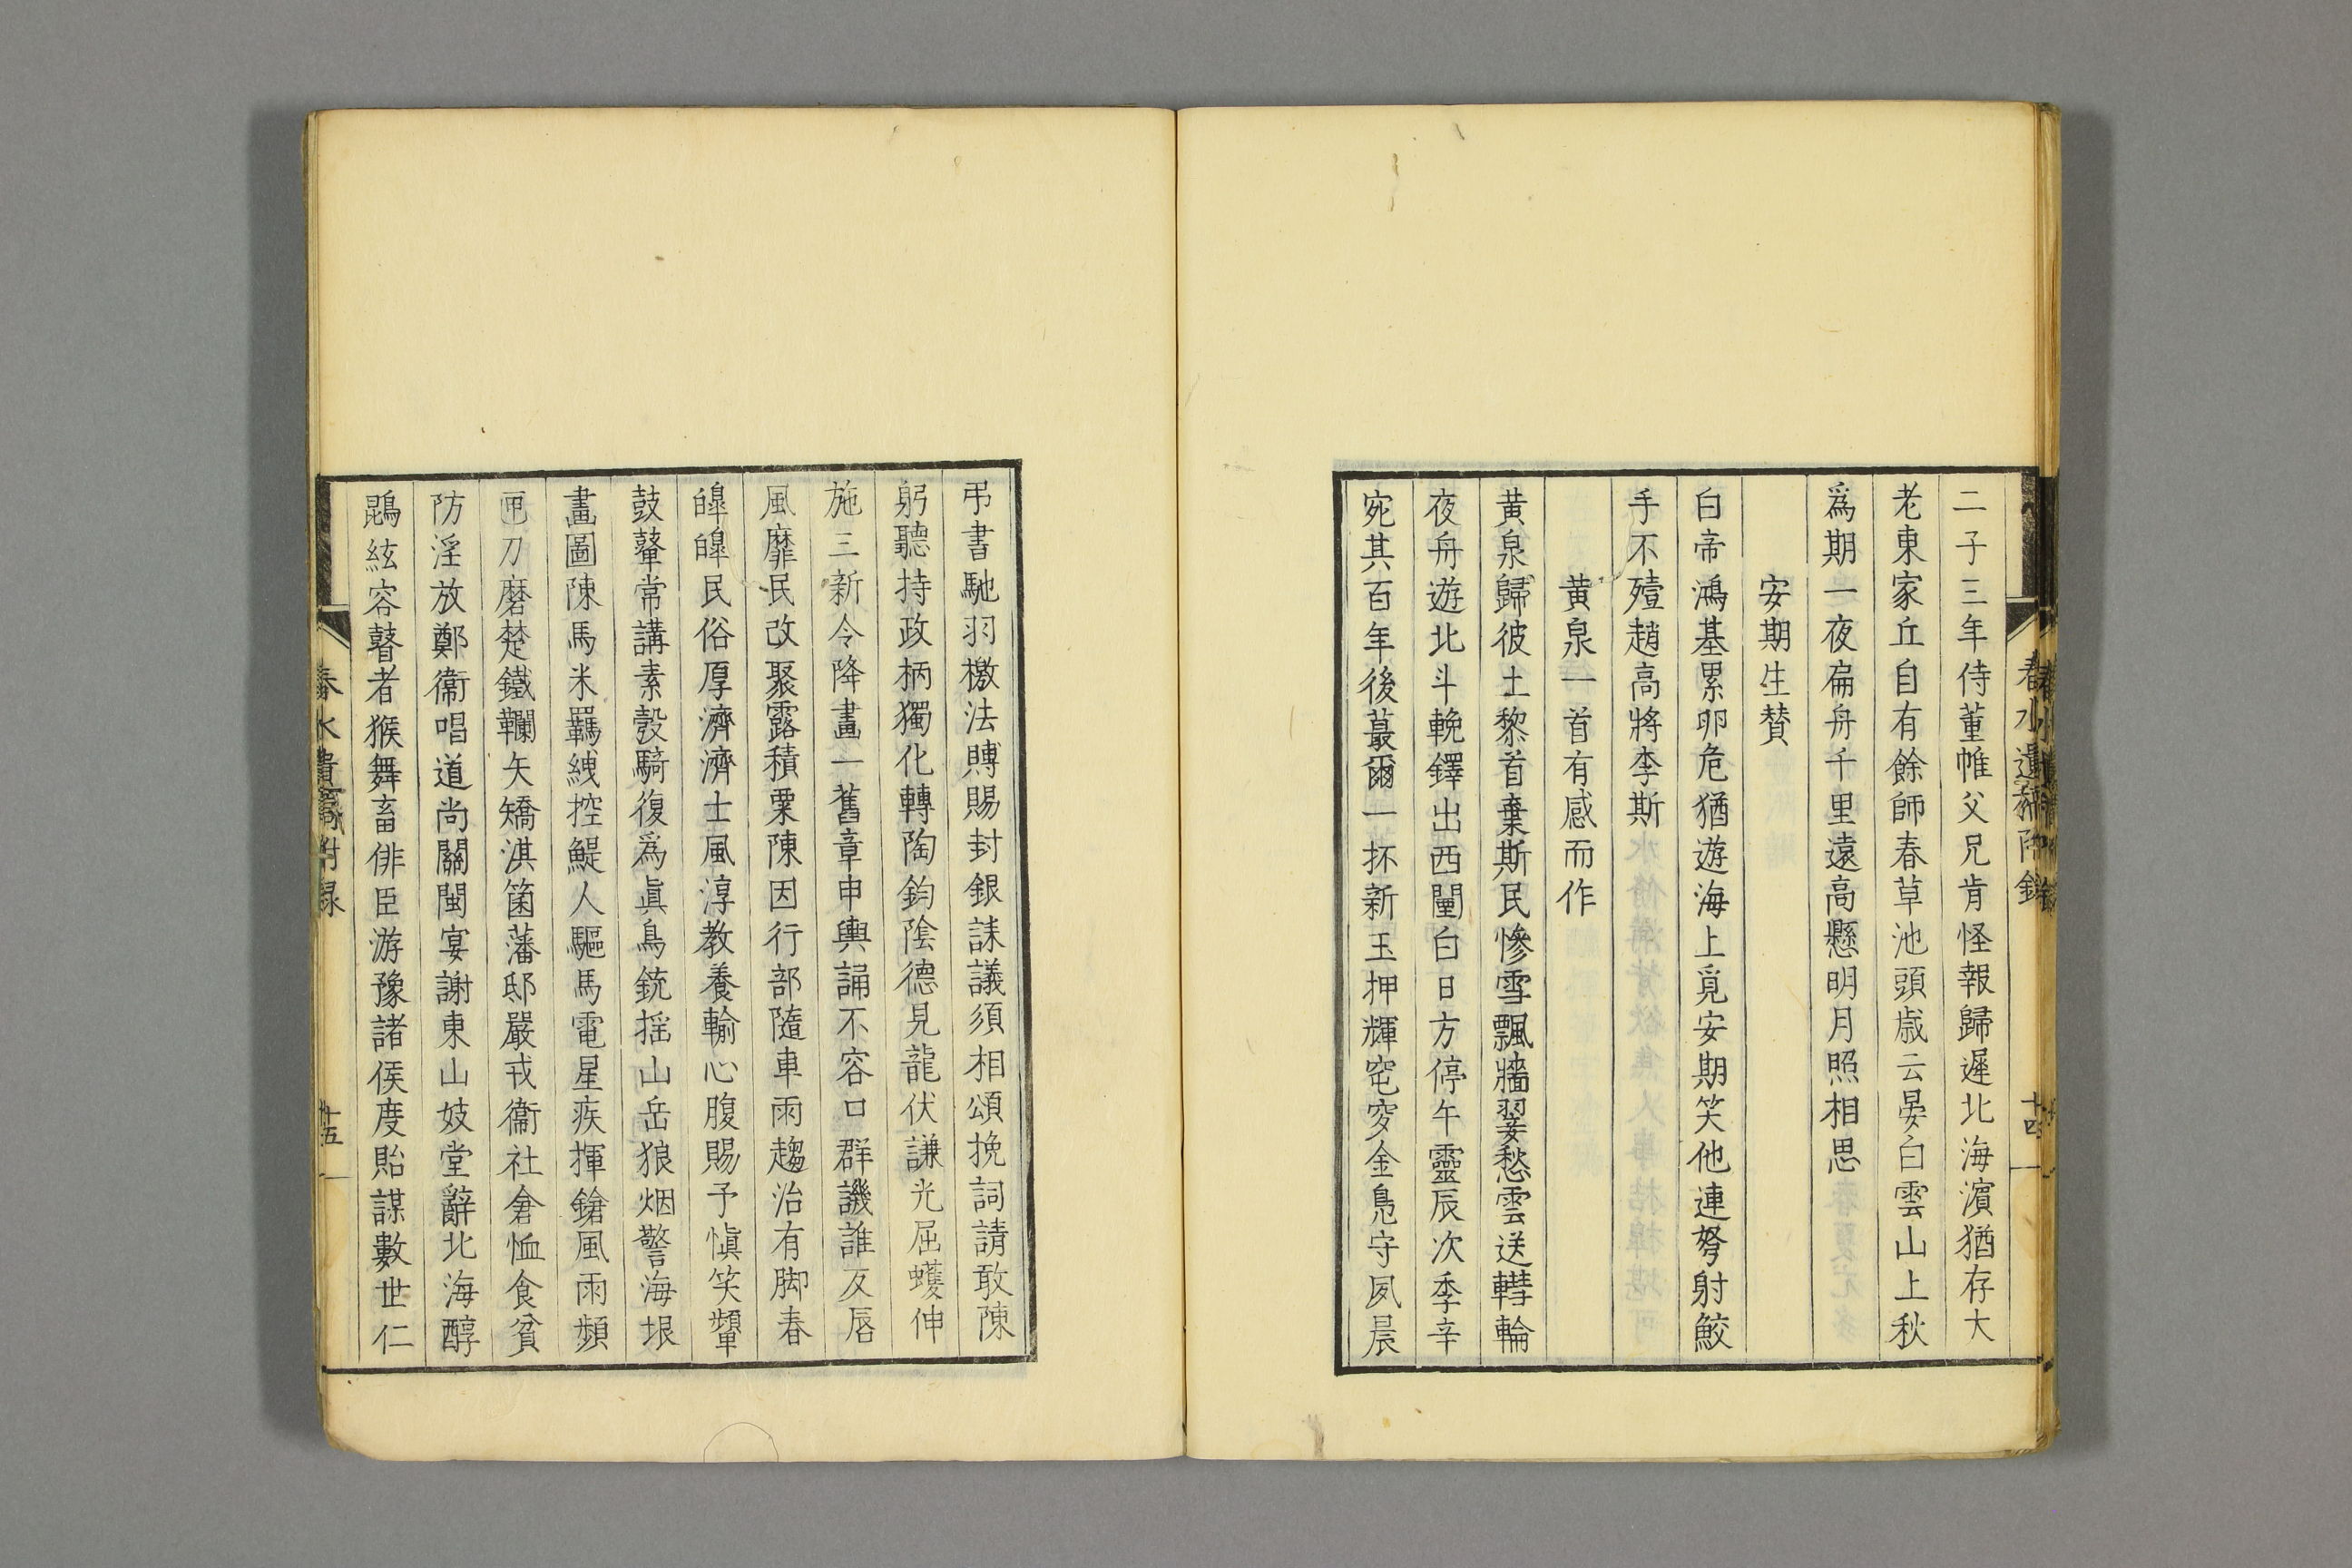 二子三年侍董帷父兄肯怪報歸遲北海濱猶存大
老東家丘自有餘師春草池頭歲云晏白雲山上秋
爲期一夜扁舟千里遠高懸明月照相思
安期生贊
白帝鴻基累卵危猶遊海上覓安期笑他連弩射鮫
手不殪趙高將李斯
黄泉一首有感而作
黄泉歸彼土黎首棄斯民慘雪飄牆翣愁雲送轊輪
夜舟遊北斗輓鐸出西闉白日方停午靈辰次季辛
宛其百年後蕞爾一抔新玉押輝窀穸金鳧守夙晨
春水遺稿附錄
十四
弔書馳羽檄法賻賜封銀誄議須相頌挽詞請敢陳
躬聽持政柄獨化轉陶鈞陰德見龍伏謙光屈蠖伸
施三新令降畫一舊章申輿誦不容口群譏誰反唇
風靡民改聚露積粟陳因行部隨車雨趨治有脚春
皞皞民俗厚濟濟士風淳教養輸心腹賜予愼笑顰
鼓鼙常講素彀騎復爲眞鳥銃搖山岳狼烟警海垠
畫圖陳馬米羈絏控鯷人驅馬電星疾揮鎗風雨頻
匣刀磨楚鐵韊矢矯淇箘藩邸嚴戎衞社倉恤食貧
防淫放鄭衞唱道尚關閩宴謝東山妓堂辭北海醇
鵾絃容瞽者猴舞畜俳臣游豫諸侯度貽謀數世仁
春水遺稿附録
十五